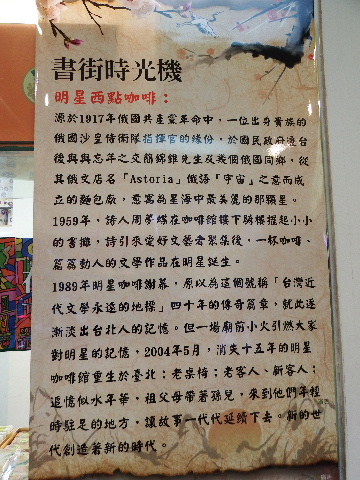 書街時光機
明星西點咖啡：
源於1917年俄國共產黨革命中，一位出身貴族的
俄國沙皇侍衛隊指揮官的緣份，於國民政府遷台
後與與忘年之交簡錦錐先生及幾個俄國同鄉，從
其俄文店名「Astoria」俄語「宇宙」之意而成
立的麵包廠，意寓為星海中最美麗的那顆星。
1959年，詩人周夢蝶在咖啡館樓下騎樓擺起小小
的書攤，詩引來愛好文藝者聚集後，一杯咖啡、
篇篇動人的文學作品在明星誕生。
1989年明星咖啡謝幕，原以為這個號稱「台灣近
代文學永遠的地標」四十年的傳奇篇章，就此逐
漸淡出台北人的記憶。但一場廟前小火引燃大家
對明星的記憶，2004年5月，消失十五年的明星
咖啡館重生於臺北；老桌椅；老客人、新客人；
追憶似水年華，祖父母帶著孫兒，來到他們年輕
時駐足的地方，讓故事一代代延續下去。新的世
代創造著新的時代。